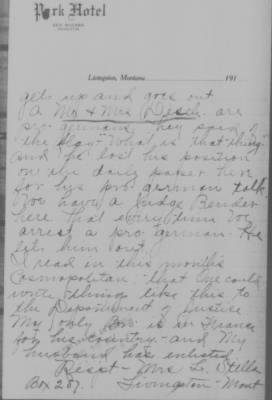 Park Hotel
Livingston, Montana 191
gets up and goes out.
A Mr & Mrs Desch are
pro-germans they said of
the flag "What is that thing"
and he lost his position
on the daily paper here
for his pro german talk
You have a Judge Bender
here that every time You
arrest a pro-german He
lets him out.
I read in this month's
Cosmopolitan, that we could
write things like this to
the Department of Justice
My only Son is in France
for his country - and My
husband has enlisted
Resst - Mrs L. Stella
Box 287. Livingston - Mont